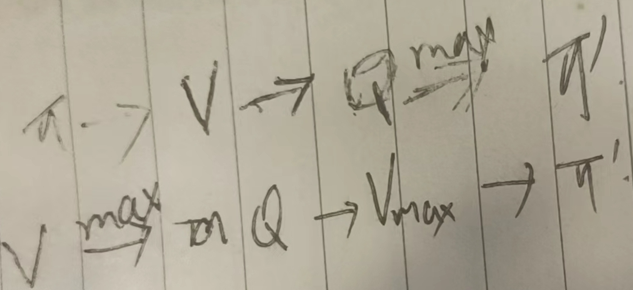 π → V → Q max→ π'
V max→ Q → Vmax → π'